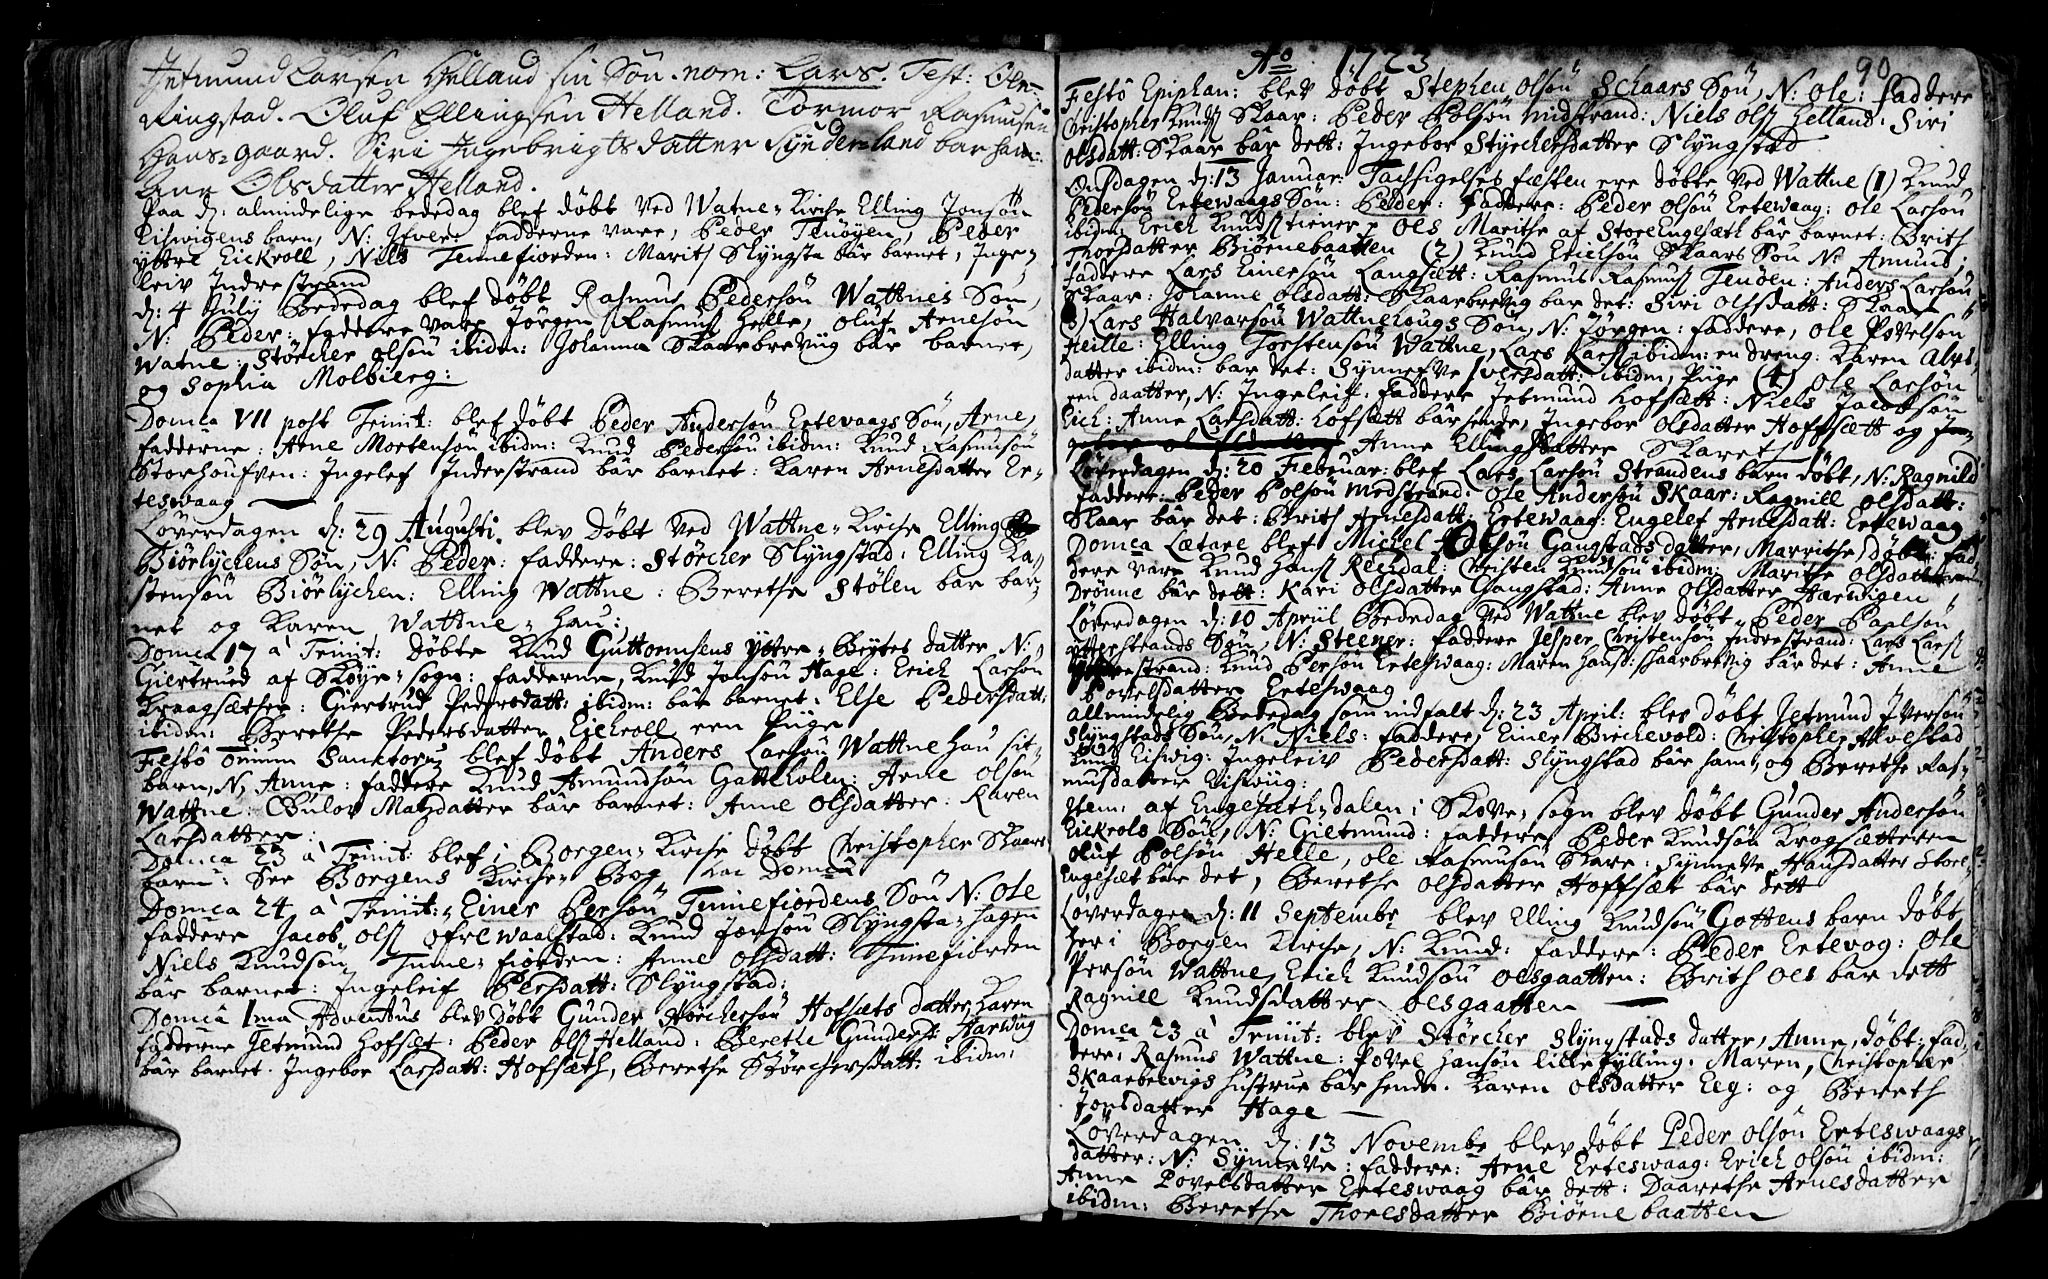 Jetmund Larsen Helland sin Søn. nom: Lars. Test: Ole
Ringstad. Oluf Ellingsen Helland. Tormor Rasmusen
Hans=gaard. Siri Ingebrigtsdatter Synderland bar ham:
Ane Olsdatter Helland.
Paa d: almindelige bededag blef døbt ved Watne=Kirche Elling Jonsøn
Eiswigens barn, N: Ifver: fadderne vare, Peder Tenøyen, Peder
yttre Eickroll, Niels Tennefiorden: Marith Slyngsta bar barnet, Inge=
leiv Indrestrand
d: 4 July Bededag blef døbt Rasmus Pedersøn Wattnes Søn,
N: Peder: faddere vare Jørgen Rasmuss Helle, Oluf Arnesøn
Watne: Størcher Olsøn ibidm: Johanna Skaarbrevig bar barnet,
og Sophia Molbierg:
Domca VII post Trinit: blef døbt Peder Andersøn Ertevaags Søn, Arne,
fadderne: Arne Mortensøn ibidm: Knud Pedersøn ibidm: Knud Rasmusøn
Storhoufven: Ingelef Inderstrand bar barnet: Karen Arnesdatter Er=
teswaag
Løverdagen d: 29 Augusti blev døbt ved Wattne=Kirche Elling
Biørlychens Søn, N: Peder: faddere: Størcher Slyngstad: Elling Ka=
stensøn Biørlychen: Elling Wattne: Berethe Stølen bar bar=
net og Karen Wattne=hau:
Domca 17 à Trinit: døbte Knud Guttormsens yttre=Brytes datter, N:
Giertrued af Skøye=sogn: fadderne, Knud Jonsøn Hage: Erich Larsøn
Kraagsæther: Giertrud Pedersdatt: ibidm: bar barnet: Else Pedersdatt:
ibidm: Berethe Pedersdatter Eickroll een Pige
Festô omium Sanctorum blef døbt Anders Larsøn Wattnehau sit
barn, N, Anne: faddere Knud Amundsøn Gatteholen: Arne Olsøn
Wattne: Gulov Matzdatter bar barnet: Anne Olsdatter: Karen
Larsdatter:
Domca 23 à Trinit: blef i Borgen=Kirche døbt Christopher Skaars
barn: See Borgens Kirche=Bog hac Domcâ
Domca 24 à Trinit:= Einer Persøn Tennefiordens Søn N: Ole
faddere Jacob Olss ofre Waalstad: Knud Jonsøn Slyngsta=hagen
Niels Knudsøn Tenne=fiorden: Anne Olsdatt: Tennefiorden
bar barnet: Ingeleif Persdatt: Slyngstad:
Domca 1ma Adventus blev døbt Gunder Størchersøn Hofsæts datter, Karen
fadderne Jetmund Hofsæt: Peder Olss Helland: Berethe Gunders: Harwiig
bar barnet. Ingebor Larsdatt: Hofsæth, Berethe Størchersdatt: ibidm:
Ao 1723
90
Festô Epiphan: blev døbt Stephen Olsøn Schaars Søn, N: Ole: faddere
Christopher Knudss Skaar: Peder Polsøn Midstrand: Niels Olss Helland: Siri
Olsdatt: Skaar bar dett: Ingebor Styrchersdatter Slyngstad
Onsdagen d: 13 Januar: Tachsigelses festen ere døbte ved Wattne (1) Knud
Pedersøn Ertewaags Søn: Peder: faddere: Peder Olsøn Ertewaag: Ole Larsøn
ibidm: Erich Knuds tiener: Ols Marithe af StoreEngesæth bar barnet: Brith
Thorsdatter Biørnebaatten (2) Knud Erichsøn Skaars Søn N: Amund:
faddere Lars Einersøn Langsætt: Rasmus Rasmuss Tenøen: Anders Larsøn
Skaar: Johanne Olsdatt: Skaarbrevig bar det: Siri Olsdatt: Skaar
(3) Lars Halvarsøn Wattnehougs Søn, N: Jørgen: faddere, Ole Povelsøn
Heille: Elling Torstensøn Wattne, Lars Larss ibidm: en dreng: Karen Alvs
datter ibidm: bar det: Synnefve Iversdatt: ibidm, Pige (4) Ole Larsøn
een daatter, N: Ingeleif: faddere Jetmund Hofsætt: Niels Jacobsøn
Eich: Anne Larsdatt: Hofsætt bar hende, Ingebor Olsdatter Hoffsætt og
Anne Ellingsdatter Skareth
Løverdagen d: 20 Februar: blef Lars Larsøn Strandens barn døbt, N: Ragnild
faddere: Peder Polsøn Medstrand: Ole Andersøn Skaar: Ragnill Olsdatt:
Skaar bar det: Brith Arnesdatt: Ertewaag: Engelef Arnesdatt: Ertewaag
Domca Lætare blef Michel Olsøn Gangstads datter, Marrithe, døbt: fad=
dere vare Knud Hanss Reendal: Christen Knudsøn ibidm: Marithe Olsdatter
Drønne bar dett: Kari Olsdatter Gangstad: Anne Olsdatter Harwigen
Løverdagen d: 10 April Bededag ved Wattne blev døbt Peder Paulsøn
ytterstrands Søn, N: Steener: faddere Jesper Christensøn Indrestrand: Lars Larss
strand: Knud Persøn Erteswaag: Maren Hansd: Skaarbrevig bar det: Anne
Povelsdatter Erteswaag
Allmindelig Bededag som indfalt d: 23 April: blev døbt Jetmund Iversøn
Slyngstads Søn, N: Niels: faddere, Einer Birchevold: Christopher Alvestad
Knud Eiswig: Ingeleiv Pedersdatt: Slyngstad bar ham, og Berethe Ras=
musdatter Eiswiig:
Item: af Engesæth=dalen i Skove=sogn blev døbt Gunder Andersøn
Eickrols Søn, N: Gietmund: faddere Peder Knudsøn Krogsætteren
Oluf Polsøn Helle, Ole Rasmusøn Skare: Synneve Hansdatter Store
Engesæt bar det, Berethe Olsdatter Hoffsæt bar dett
Løverdagen d: 11 Septembr blev Elling Knudsøn Gottens barn døbt
her i Borgen Kirche, N: Knud: faddere: Peder Ertevog: Ole
Persøn Wattne, Erich Knudsøn Olsgaatten: Brith Ols bar dett
Ragnill Knudsdatter Olsgaatten
Domca 23 à Trinit: blev Størcher Slyngstads datter, Anne, døbt: fad=
dere: Rasmus Wattne: Povel Hansøn lille Fylling. Maren, Christopher
Skaarbrevigs hustrue bar hende. Karen Olsdatter Eeg: og Bereth
Jonsdatter Hage
Løverdagen d: 13 Novembr blev døbt Peder Olsøn Erteswaags
datter: N: Synneve: faddere: Arne Erteswaag: Erich Olsøn ibidm:
Anne Povelsdatter Erteswaag bar dett: Daarethe Arnesdatter
ibidm: Berethe Thoresdatter Biørnebaatten